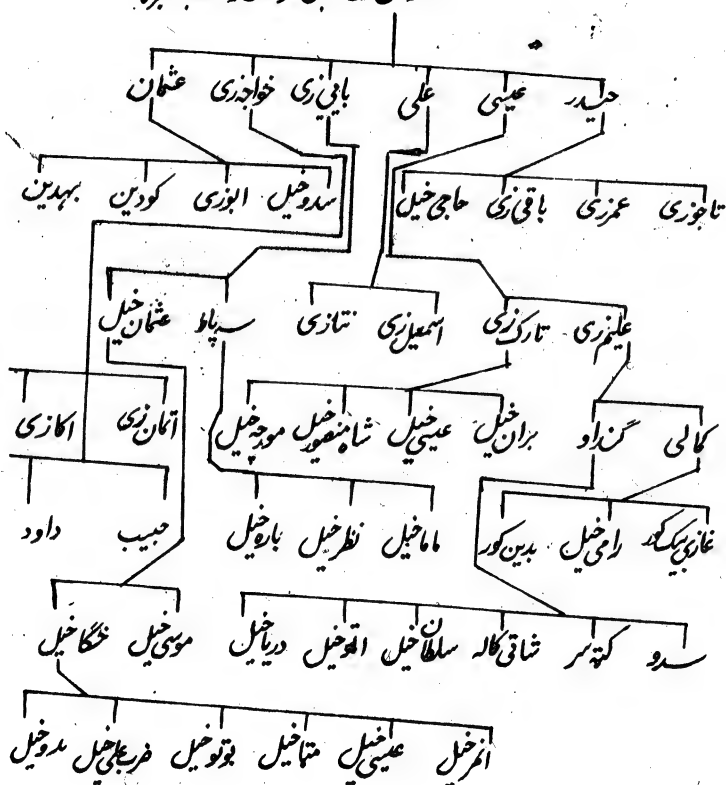 حیدر عیسی علی باقی زری خواجه زری عثمان
تاجوزی عمرزی باقی زی حاجی خیل سدوخیل ابوزی کودین بهدین
علیم زی تارک زی اسمعیل زی نتازی سه پاط عثمان خیل
کمالی گنداو بران خیل عیسی خیل شاه منصور خیل مورچه خیل اتمان زی اکازی
رامی خیل بدین کور ماما خیل نظر خیل باره خیل حبیب داود
سدو کته سر شاقی کاله سلطان خیل اتو خیل دریا خیل موسی خیل خگا خیل
انمر خیل عیسی خیل متا خیل بوتو خیل ضرب علی خیل بدو خیل